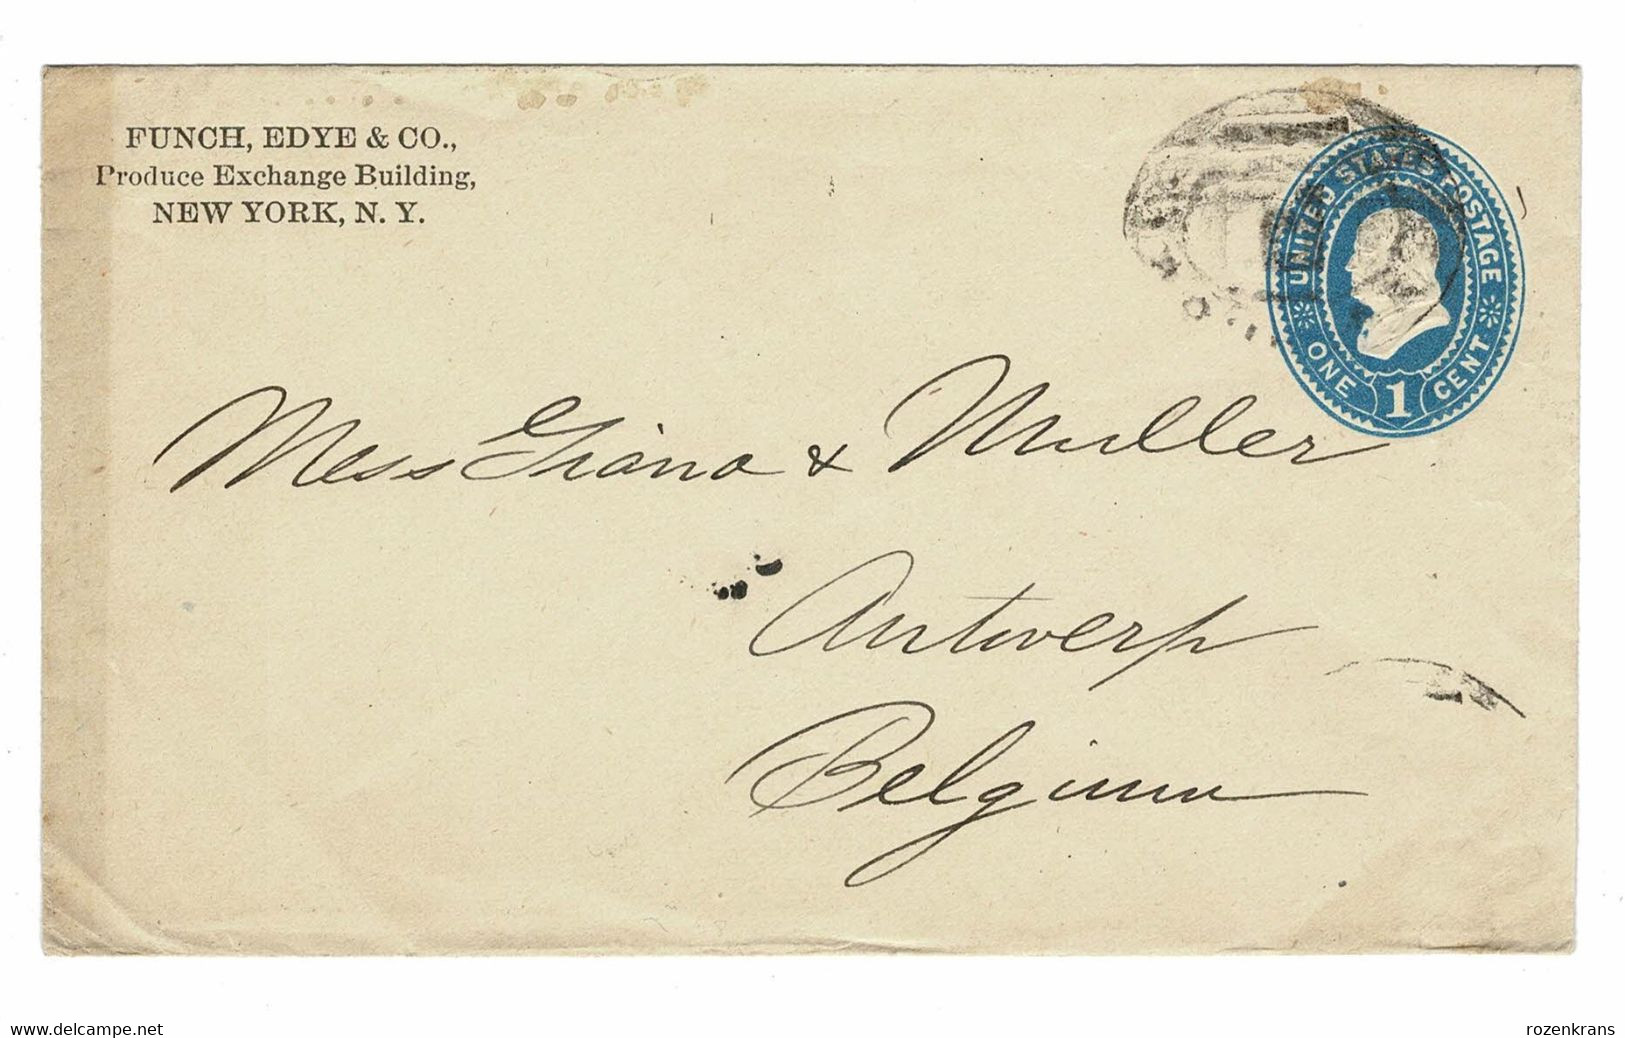 FUNCH, EDYE & CO.,
Produce Exchange Building,
NEW YORK, N. Y.
UNITED STATES POSTAGE
ONE 1 CENT
Mess Giana & Muller
Antwerp
Belgium
www.delcampe.net
rozenkrans